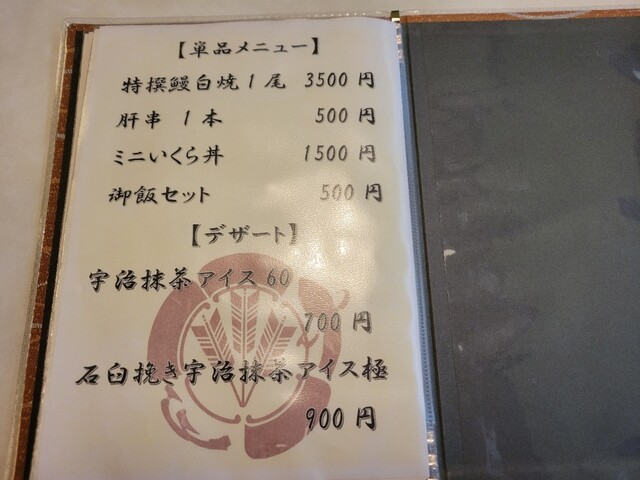 【単品メニュー】
特撰鰻白焼1尾 3500円
肝串 1本 500円
ミニいくら丼 1500円
御飯セット 500円
【デザート】
宇治抹茶アイス60
700円
石臼挽き宇治抹茶アイス極
900円